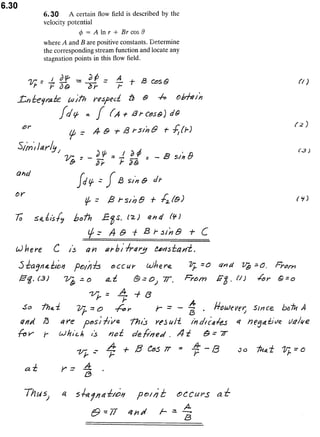 6.30
6.30 A certain flow field is described by the
velocity potential
ϕ = A ln r + Br cos θ
where A and B are positive constants. Determine
the corresponding stream function and locate any
stagnation points in this flow field.
v_r = 1/r ∂ψ/∂θ = ∂ϕ/∂r = A/r + B cos θ (1)
Integrate with respect to θ to obtain
∫dψ = ∫ (A + Br cos θ) dθ
or ψ = A θ + B r sin θ + f₁(r) (2)
Similarly,
v_θ = - ∂ψ/∂r = 1/r ∂ϕ/∂θ = - B sin θ (3)
and ∫dψ = ∫ B sin θ dr
or ψ = B r sin θ + f₂(θ) (4)
To satisfy both Eqs. (2) and (4)
ψ = A θ + B r sin θ + C
where C is an arbitrary constant.
Stagnation points occur where v_r = 0 and v_θ = 0. From
Eq. (3) v_θ = 0 at θ = 0, π. From Eq. (1) for θ = 0
v_r = A/r + B
so that v_r = 0 for r = - A/B. However, since both A
and B are positive this result indicates a negative value
for r which is not defined. At θ = π
v_r = A/r + B cos π = A/r - B so that v_r = 0
at r = A/B.
Thus, a stagnation point occurs at
θ = π and r = A/B